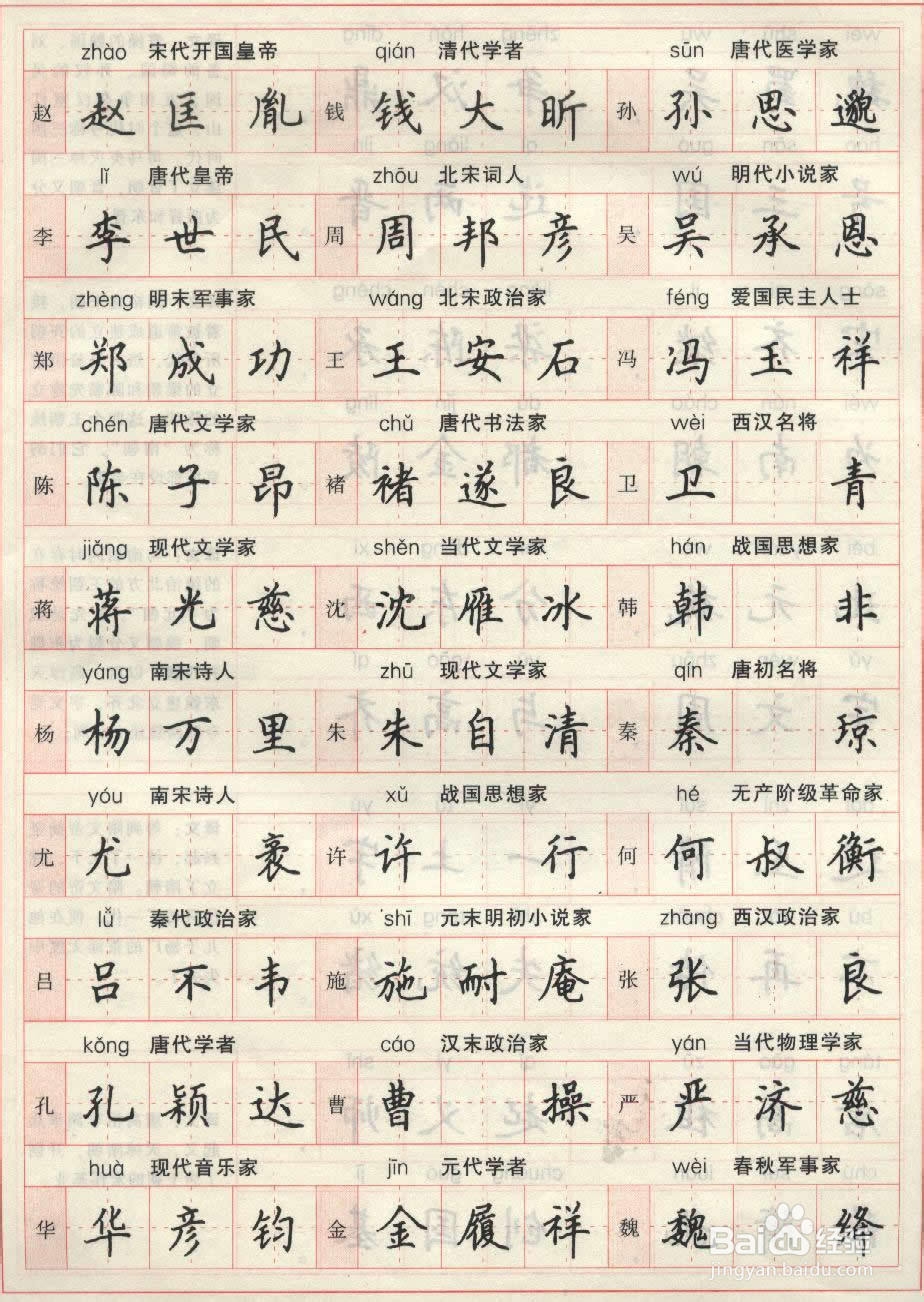 zhào 宋代开国皇帝 qián 清代学者 sūn 唐代医学家
赵 赵匡胤 钱 钱大昕 孙 孙思邈
lǐ 唐代皇帝 zhōu 北宋词人 wú 明代小说家
李 李世民 周 周邦彦 吴 吴承恩
zhèng 明末军事家 wáng 北宋政治家 féng 爱国民主人士
郑 郑成功 王 王安石 冯 冯玉祥
chén 唐代文学家 chǔ 唐代书法家 wèi 西汉名将
陈 陈子昂 褚 褚遂良 卫 卫青
jiǎng 现代文学家 shěn 当代文学家 hán 战国思想家
蒋 蒋光慈 沈 沈雁冰 韩 韩非
yáng 南宋诗人 zhū 现代文学家 qín 唐初名将
杨 杨万里 朱 朱自清 秦 秦琼
yóu 南宋诗人 xǔ 战国思想家 hé 无产阶级革命家
尤 尤袤 许 许行 何 何叔衡
lǚ 秦代政治家 shī 元末明初小说家 zhāng 西汉政治家
吕 吕不韦 施 施耐庵 张 张良
kǒng 唐代学者 cáo 汉末政治家 yán 当代物理学家
孔 孔颖达 曹 曹操 严 严济慈
huà 现代音乐家 jīn 元代学者 wèi 春秋军事家
华 华彦钧 金 金履祥 魏 魏绛
Baidu 经验
jingyan.baidu.com